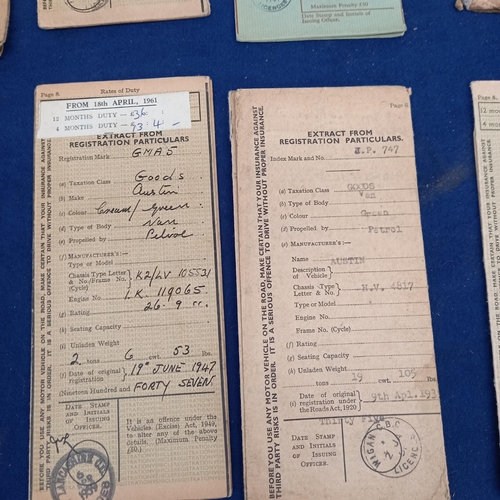 Maximum Penalty £20
Date Stamp and Initials of
Issuing Officer.
Page 8. Rates of Duty
FROM 18th APRIL, 1961
12 MONTHS DUTY —
4 MONTHS DUTY —
EXTRACT FROM
REGISTRATION PARTICULARS
Registration Mark GMA5
(a) Taxation Class Goods
(b) Make Austin
(c) Colour Cream/Green
(d) Type of Body Van
(e) Propelled by Petrol
(f) MANUFACTURER'S:—
Type of Model
Chassis Type Letter
& No./Frame No. K2/LV 105531
(Cycle)
Engine No. LK 119065
(g) Rating 26.9 cc.
(h) Seating Capacity
(i) Unladen Weight
2 tons 6 cwt. 53 lbs.
(j) Date of original
registration 19th JUNE 1947
(Nineteen Hundred and FORTY SEVEN
DATE STAMP
AND INITIALS
OF
ISSUING
OFFICER.
It is an offence under the
Vehicles (Excise) Act, 1949,
to alter any of the above
details. (Maximum Penalty
BEFORE YOU USE ANY MOTOR VEHICLE ON THE ROAD, MAKE CERTAIN THAT YOUR INSURANCE AGAINST
THIRD PARTY RISKS IS IN ORDER. IT IS A SERIOUS OFFENCE TO DRIVE WITHOUT PROPER INSURANCE.
EXTRACT FROM
REGISTRATION PARTICULARS.
Index Mark and No. J.P. 747
(a) Taxation Class GOODS
(b) Type of Body Van
(c) Colour Green
(d) Propelled by Petrol
(e) MANUFACTURER'S:—
Name AUSTIN
Description
of Vehicle
Chassis Type
Letter & No. H.V. 4817
Type or Model
Engine No.
Frame No. (Cycle)
(f) Rating
(g) Seating Capacity
(h) Unladen Weight
tons 19 cwt. 105 lbs.
(j) Date of original
registration under
the Roads Act, 1920 9th Apl. 193
Thirty Five
DATE STAMP
AND INITIALS
OF
ISSUING
OFFICER.
WIGAN C.B.C.
LICENCE
BEFORE YOU USE ANY MOTOR VEHICLE ON THE ROAD, MAKE CERTAIN THAT YOUR INSURANCE AGAINST
THIRD PARTY RISKS IS IN ORDER. IT IS A SERIOUS OFFENCE TO DRIVE WITHOUT PROPER INSURANCE.
Page 8.
12 mo
4 mo